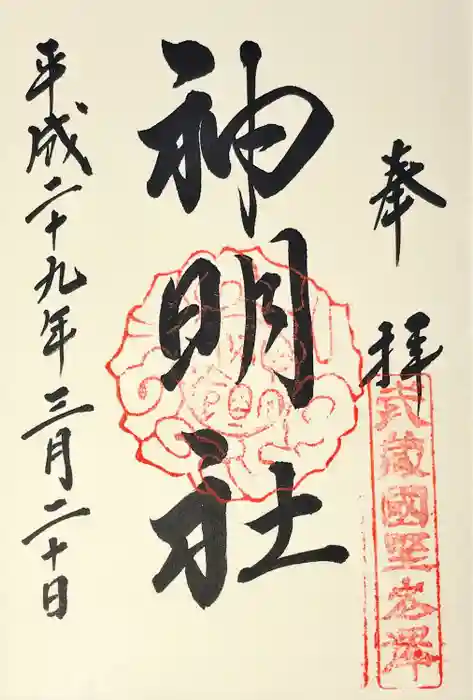 奉拝
武蔵國
神明社
平成二十九年三月二十日